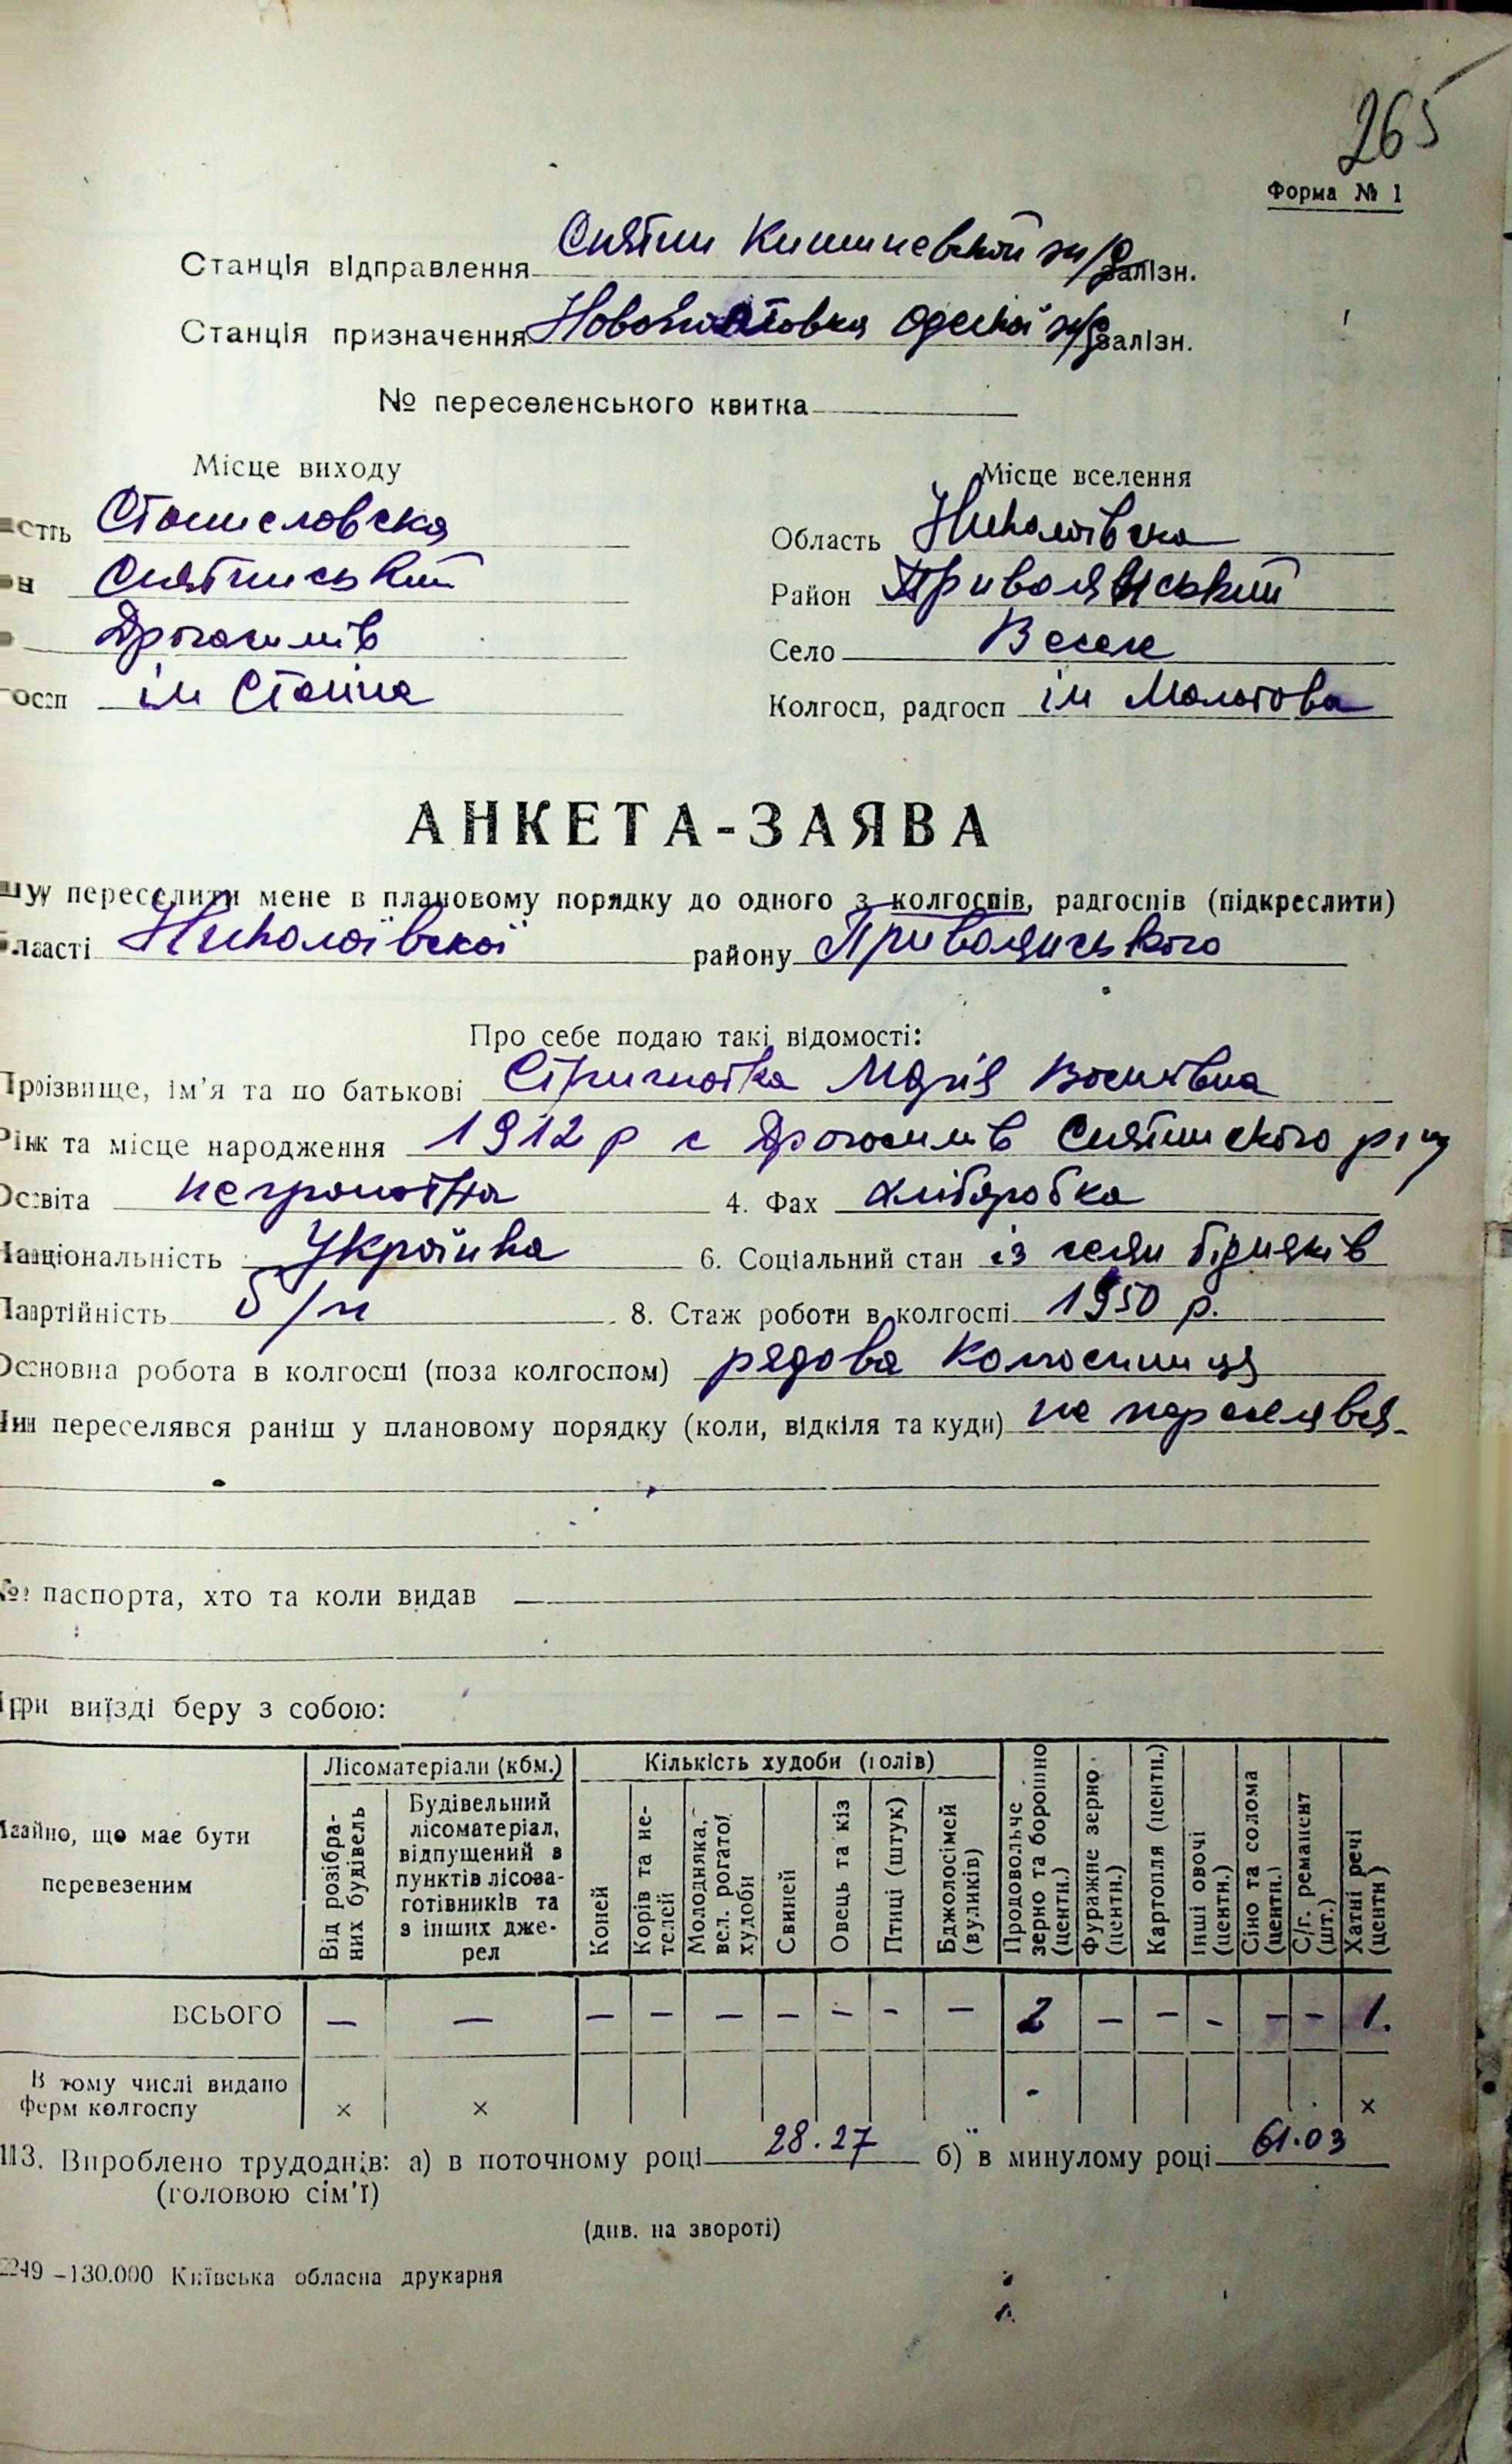 265
Форма № 1
Станція відправлення Снятин Кишиневської ж/д залізн.
Станція призначення Новополтовка Одеської ж/д залізн.
№ переселенського квитка
Місце виходу
Місце вселення
Станиславська
Область Николаївська
Снятинський
Район Привольянський
Драгасимів
Село Веселе
ім Сталіна
Колгосп, радгосп ім Молотова
АНКЕТА-ЗАЯВА
переселити мене в плановому порядку до одного з колгоспів, радгоспів (підкреслити)
Николаївської району Привольянського
Про себе подаю такі відомості:
Прізвище, ім'я та по батькові Марія Василівна
Рік та місце народження 1912 р с Драгасимів Снятинского р-ну
Освіта неграмотна 4. Фах хліборобка
Національність Українка 6. Соціальний стан із селян бідняків
Партійність б/п 8. Стаж роботи в колгоспі 1950 р.
Основна робота в колгоспі (поза колгоспом) рядова колгоспниця
Чи переселявся раніш у плановому порядку (коли, відкіля та куди) не переселявся
№ паспорта, хто та коли видав
При виїзді беру з собою:
Майно, що має бути перевезеним
Лісоматеріали (кбм.)
Кількість худоби (голів)
Від розібраних будівель
Будівельний лісоматеріал, відпущений з пунктів лісозаготівників та з інших джерел
Коней
Корів та нетелей
Молодняка, вел. рогатої худоби
Свиней
Овець та кіз
Птиці (штук)
Бджолосімей (вуликів)
Продовольче зерно та борошно (центн.)
Фуражне зерно (центн.)
Картопля (центн.)
Інші овочі (центн.)
Сіно та солома (центн.)
С/г. реманент (шт.)
Хатні речі (центн)
ВСЬОГО — — — — — — — — — 2 — — — — — 1.
В тому числі видано ферм колгоспу × × - ×
13. Вироблено трудоднів: а) в поточному році 28.27 б) в минулому році 61.03
(головою сім'ї)
(див. на звороті)
2249 —130.000 Київська обласна друкарня